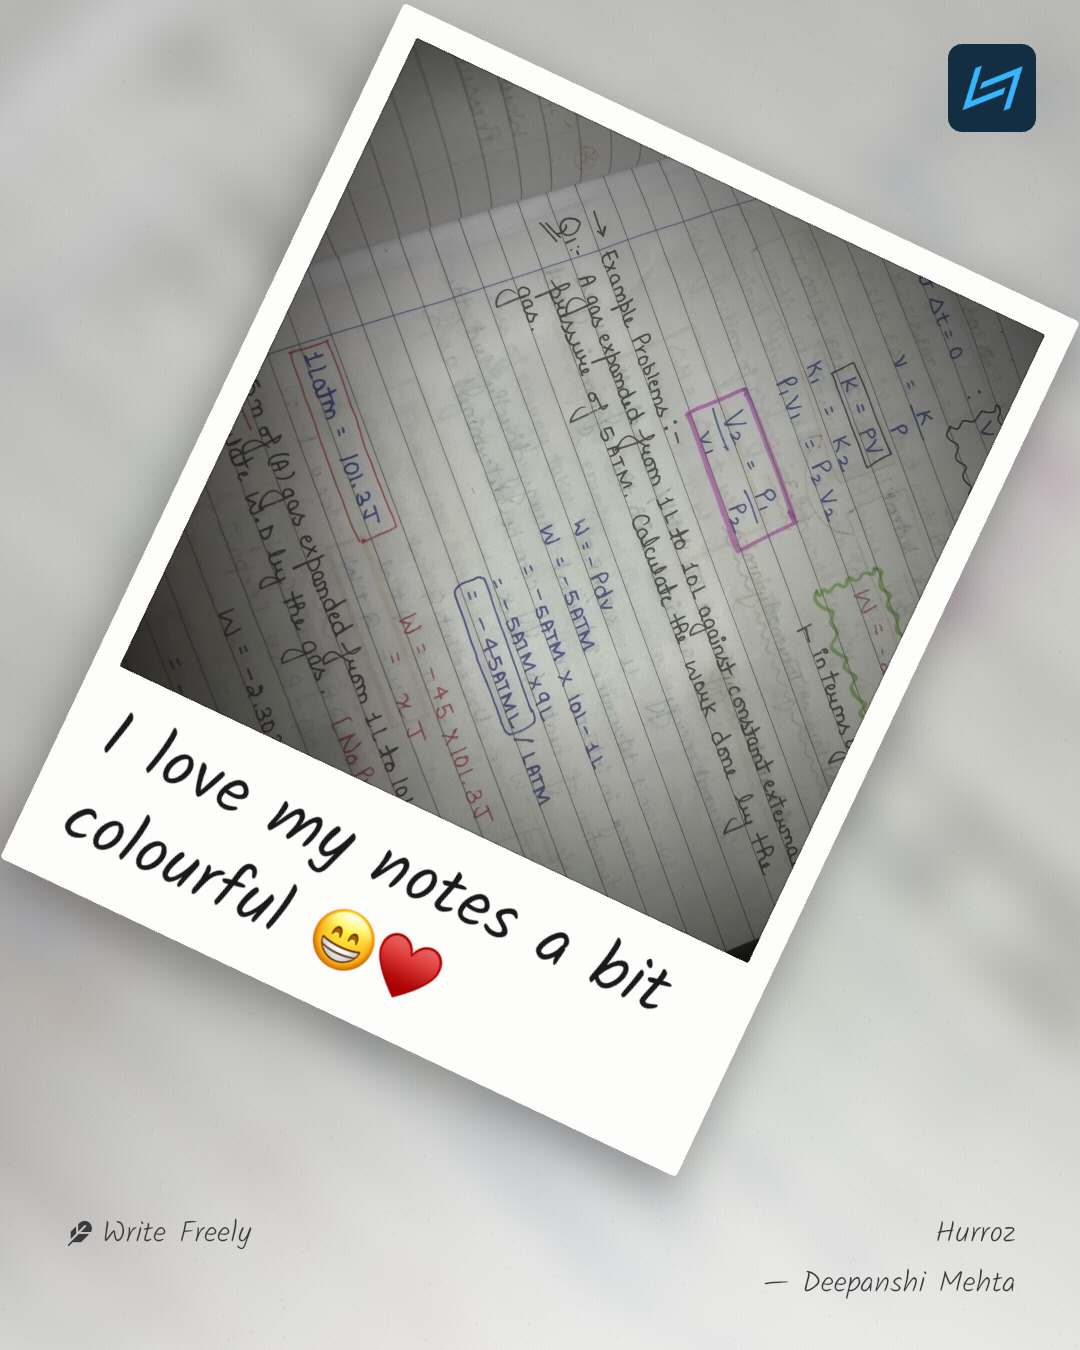 Δt = 0
V = K/P
K = PV
K₁ = K₂
P₁V₁ = P₂V₂
V₂/V₁ = P₁/P₂
W = -
→ in terms
→ Example Problems :-
Q1:- A gas expanded from 1L to 10L against constant external
pressure of 5ATM. Calculate the work done by the
gas.
W = - Pdv
W = - 5ATM
= - 5ATM X 10L - 1L
= - 5ATM X 9L
= - 45ATML / LATM
1Latm = 101.3J
W = - 45 X 101.3J
= x J
n of (A) gas expanded from 1L to 10L
W.D by the gas.
W = -2.30
I love my notes a bit
colourful 😁♥️
Write Freely
Hurroz
— Deepanshi Mehta